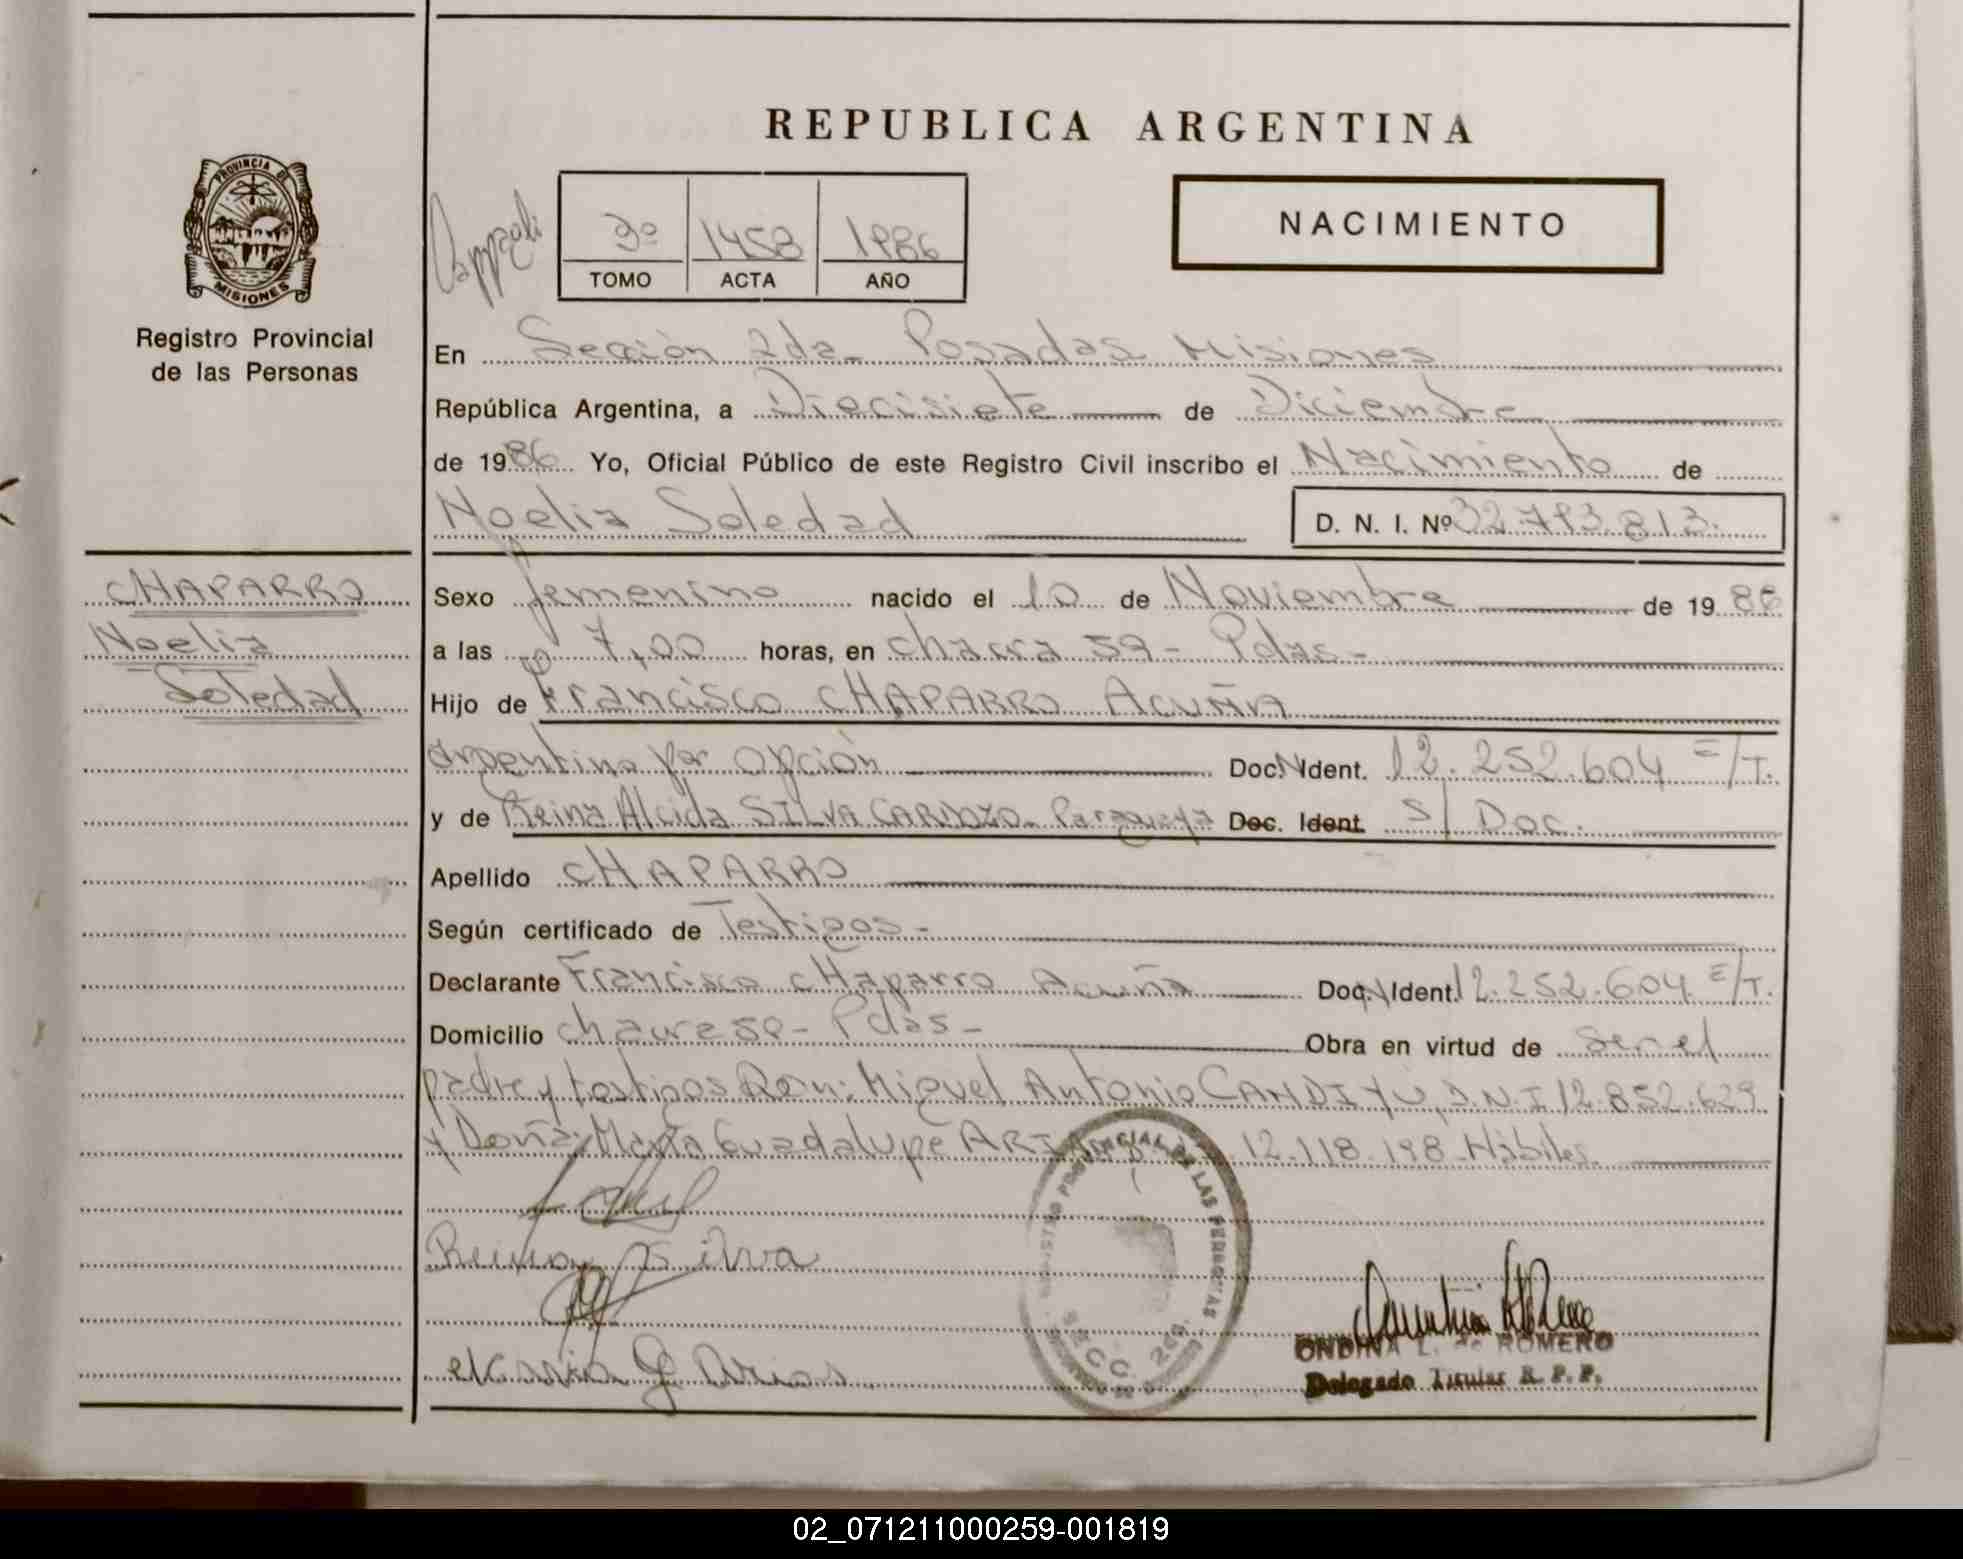 REPUBLICA ARGENTINA
PROVINCIA DE
MISIONES
Registro Provincial
de las Personas
3º 1458 1986
TOMO ACTA AÑO
NACIMIENTO
En Sección 2da- Posadas Misiones
República Argentina, a Diecisiete de Diciembre
de 1986 Yo, Oficial Público de este Registro Civil inscribo el Nacimiento de
Noelia Soledad D. N. I. Nº 32.793.813.
CHAPARRO
Noelia
Soledad
Sexo femenino nacido el 10 de Noviembre de 1986
a las 7,00 horas, en chacra 59- Pdas-
Hijo de Francisco CHAPARRO ACUÑA
argentino por opción Doc. Ident. 12.252.604 E/T.
y de Reina Alcida SILVA CARDOZO- Paraguaya Doc. Ident. S/ Doc.
Apellido CHAPARRO
Según certificado de Testigos-
Declarante Francisco CHaparro Acuña Doc. Ident. 12.252.604 E/T.
Domicilio chacra 59- Pdas- Obra en virtud de ser el
padre y testigos Don: Miguel Antonio CANDIYÚ, D.N.I 12.852.629
y Doña: María Guadalupe 12.118.198 Hábiles.
Reina Silva
G Arias
SECC. 2da.
ONDINA L. de ROMERO
Delegado Titular R. P. P.
02_071211000259-001819